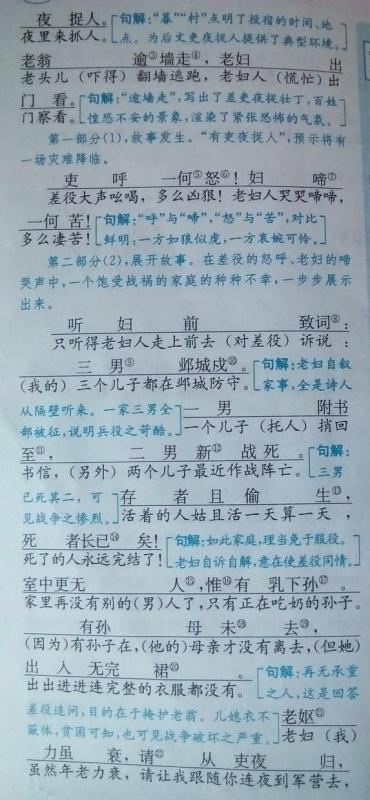 夜 捉人。[句解:“暮”“村”点明了投宿的时间、地
夜里来抓人。点。为后文吏夜捉人提供了典型环境。]
老翁 逾③墙走④,老妇 出
老头儿(吓得)翻墙逃跑,老妇人(慌忙)出
门 看。[句解:“逾墙走”,写出了差吏夜捉壮丁,百姓
门察看。惶恐不安的景象,渲染了紧张恐怖的气氛。]
第一部分(1),故事发生。“有吏夜捉人”,预示将有
一场灾难降临。
吏 呼 一何⑤怒⑥!妇 啼⑦
差役大声吆喝,多么凶狠!老妇人哭哭啼啼,
一何 苦![句解:“呼”与“啼”,“怒”与“苦”,对比
多么凄苦!鲜明:一方如狼似虎,一方哀婉可怜。]
第二部分(2),展开故事。在差役的怒呼、老妇的啼
哭声中,一个饱受战祸的家庭的种种不幸,一步步展示
出来。
听 妇 前 致词⑧:
只听得老妇人走上前去(对差役)诉说:
三 男⑨ 邺城戍⑩。[句解:老妇自叙
(我的)三个儿子都在邺城防守。家事,全是诗人
从隔壁听来。一家三男全]一 男 附书
部被征,说明兵役之苛酷。一个儿子(托人)捎回
至⑪, 二 男 新⑫ 战死。[句解:
书信,(另外)两个儿子最近作战阵亡。三男
已死其二,可]存 者 且 偷 生⑬,
见战争之惨烈。活着的人姑且活一天算一天,
死 者长已⑭ 矣![句解:如此家庭,理当免于服役。
死了的人永远完结了!老妇自诉自解,意在使差役同情。]
室中更无 人⑮,惟⑯有 乳下孙⑰。
家里再没有别的(男)人了,只有正在吃奶的孙子。
有孙 母 未⑱ 去⑲,
(因为)有孙子在,(他的)母亲才没有离去,(但她)
出 入 无完 裙⑳。[句解:再无承重
出出进进连完整的衣服都没有。之人,这是回答
差役追问,目的在于掩护老翁。儿媳衣不]老妪㉑
蔽体,贫困可知,也可见战争破坏之严重。老妇(我)
力虽 衰,请㉒ 从 吏夜 归,
虽然年老力衰,请让我跟随你连夜到军营去,